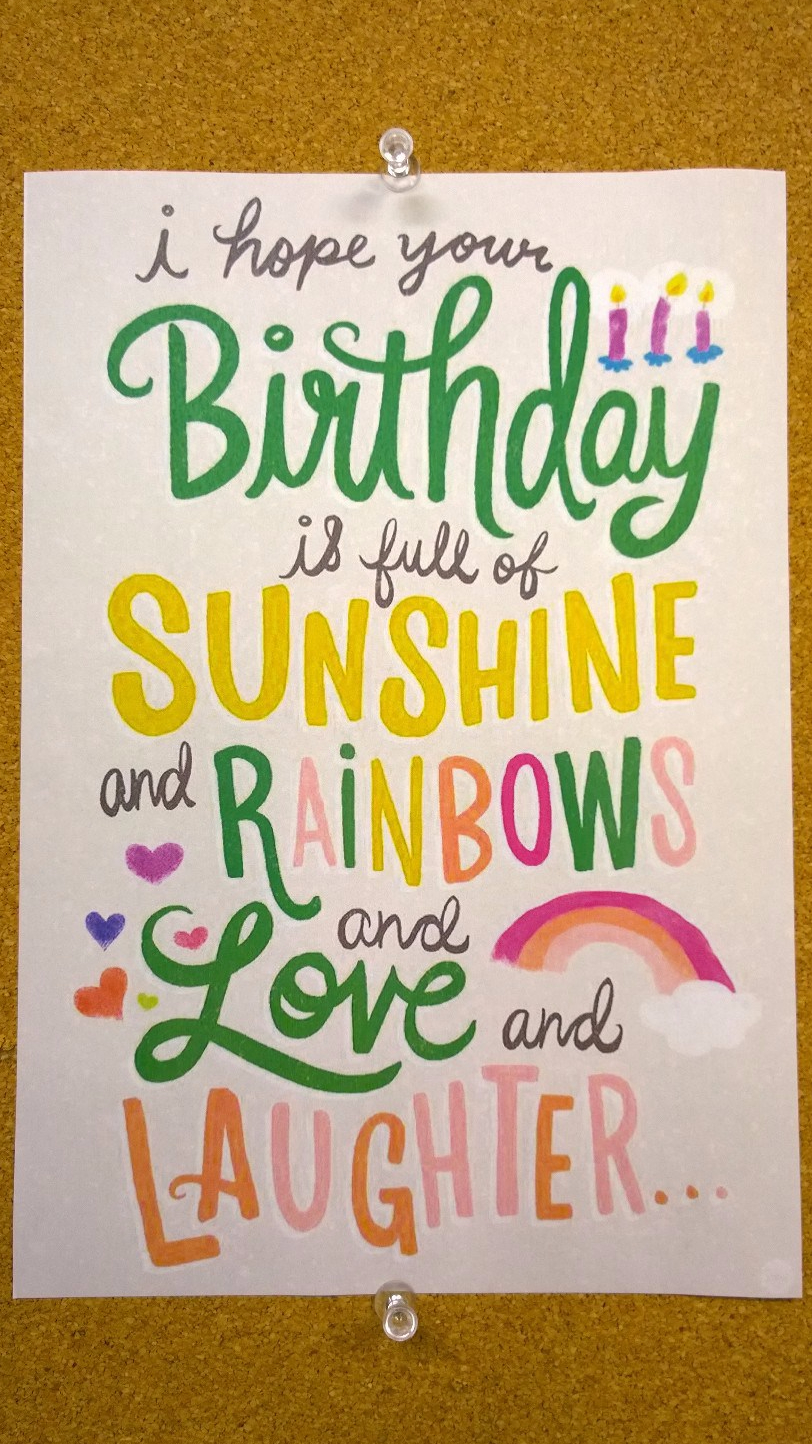 i hope your
Birthday
is full of
SUNSHINE
and RAiNBOWS
and
Love and
LAUGHTER...